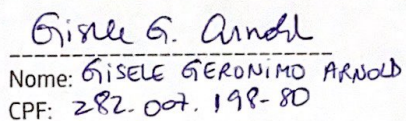 Gisele G. Arnold
Nome: GISELE GERONIMO ARNOLD
CPF: 282.007.198-80